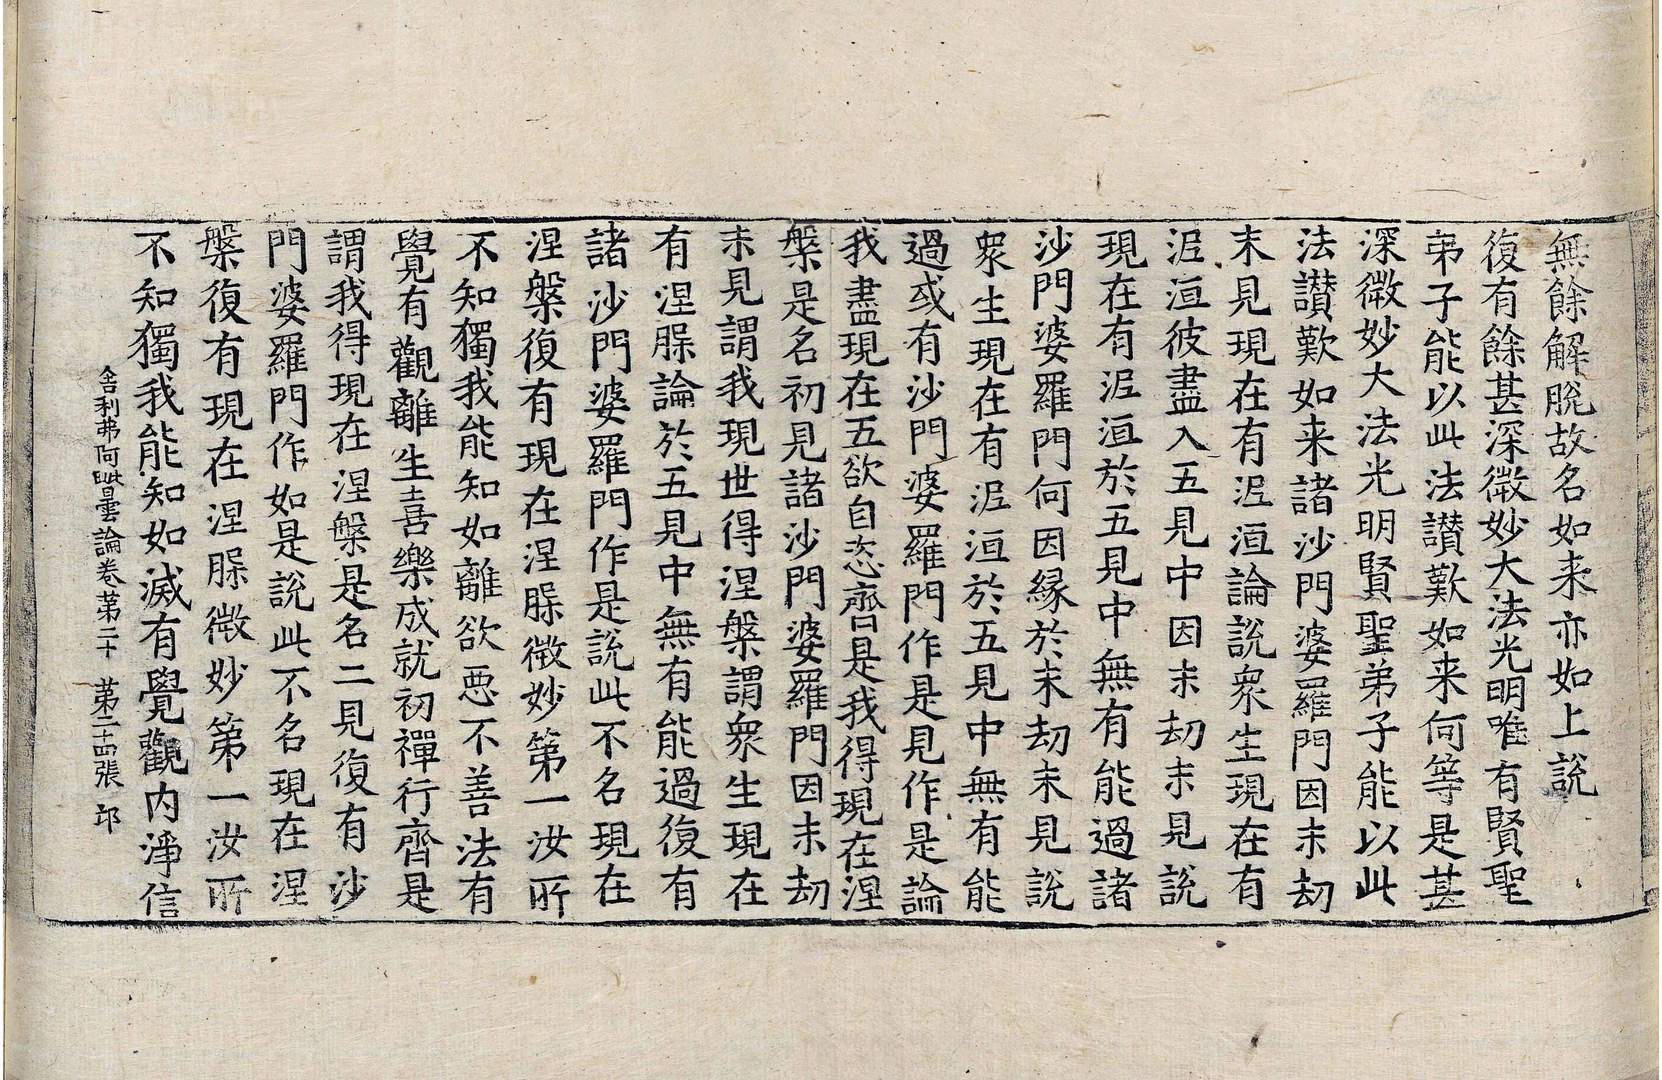 無餘解脫故名如来亦如上說
復有餘甚深微妙大法光明唯有賢聖
弟子能以此法讃歎如来何等是甚
深微妙大法光明賢聖弟子能以此
法讃歎如来諸沙門婆羅門因末劫
末見現在有泥洹論說衆生現在有
泥洹彼盡入五見中因末劫末見說
現在有泥洹於五見中無有能過諸
沙門婆羅門何因緣於末劫末見說
衆生現在有泥洹於五見中無有能
過或有沙門婆羅門作是見作是論
我盡現在五欲自恣齊是我得現在涅
槃是名初見諸沙門婆羅門因末劫
末見謂我現世得涅槃謂衆生現在
有涅槃論於五見中無有能過復有
諸沙門婆羅門作是說此不名現在
涅槃復有現在涅槃微妙第一汝所
不知獨我能知如離欲惡不善法有
覺有觀離生喜樂成就初禪行齊是
謂我得現在涅槃是名二見復有沙
門婆羅門作如是說此不名現在涅
槃復有現在涅槃微妙第一汝所
不知獨我能知如滅有覺觀内淨信
舍利弗阿毗曇論卷第二十 第二十四張 㔻